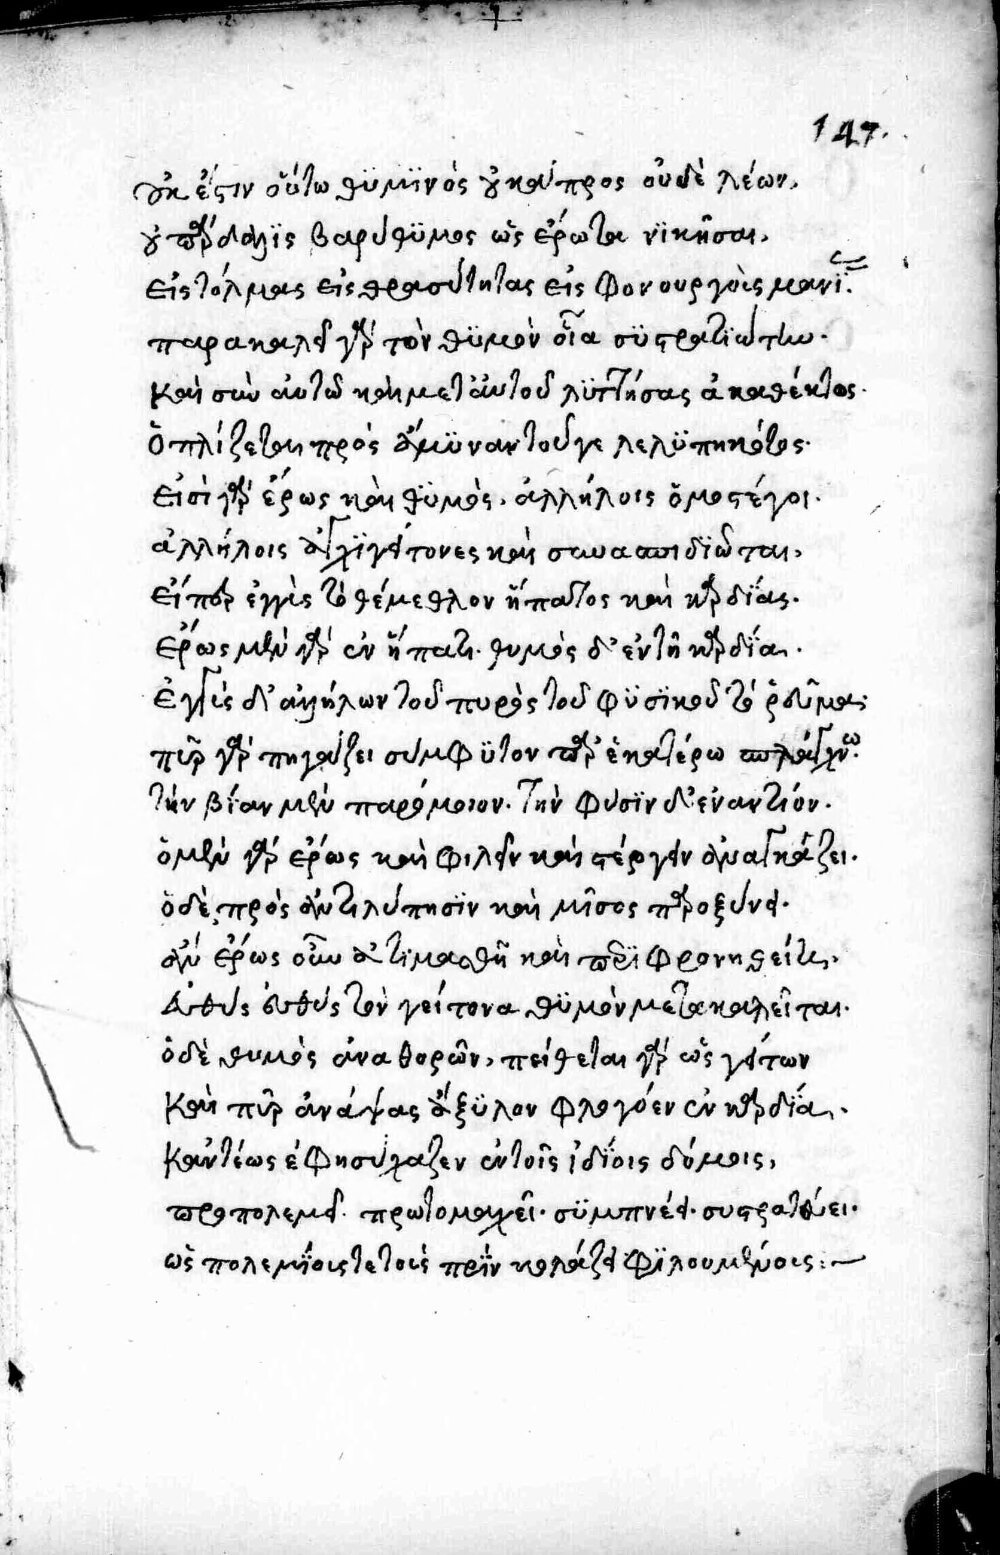 147.
οὐκ ἔστιν οὕτω θϋμϊνὸς οὐ κάπρος οὐδὲ λέων,
οὐ πάρδαλϊς βαρύθϋμος ὡς ἔρωτα νϊκῆσαι,
εἰς τόλμας εἰς θρασύτητας εἰς φονουργοὺς μανΐ.
παρακαλεῖ γὰρ τὸν θϋμὸν οἷα σϋστρατϊώτην.
καὶ σὺν αὐτῶ καὶ μετ' αὐτοῦ λϋττήσας ἀκαθέκτως.
ὁπλίζεται πρὸς ἄμϋναν τοῦ γε λελϋπηκότος.
εἰσὶ γὰρ ἔρως καὶ θϋμὸς, ἀλλήλοις ὁμοστέγοι.
ἀλλήλοις ἀγχϊγείτονες καὶ συνασπιδϊῶται,
εἴπερ ἐγγὺς τὸ θέμεθλον ἥπατος καὶ καρδΐας.
ἔρως μὲν γὰρ ἐν ἥπατι. θυμὸς δ' ἐν τῆ καρδΐα.
ἐγγὺς δ' ἀλλήλων τοῦ πυρὸς τοῦ φϋσϊκοῦ τὸ ῥεῦμα.
πῦρ γὰρ πηγάζει σύμφϋτον παρ' ἑκατέρω σπλάγχνω.
τὴν βίαν μὲν παρόμοιον. τὴν φύσϊν δ' ἐναντίον.
ὁ μὲν γὰρ ἔρως καὶ φιλεῖν καὶ στέργειν ἀναγκάζει.
ὁ δὲ πρὸς ἀντιλύπησϊν καὶ μῖσος παροξύνει.
ἂν ἔρως οὖν ἀτϊμασθῆ καὶ περϊφρονηθείη,
εὐθὺς εὐθὺς τὸν γείτονα θϋμὸν μετακαλεῖται.
ὁ δὲ θυμὸς ἀναθορῶν, πείθεται γὰρ ὡς γείτων
καὶ πῦρ ἀνάψας ἄξϋλον φλογόεν ἐν καρδΐα.
κἂν τέως ἐφησύχαζεν ἐν τοῖς ἰδΐοις δόμοις,
προπολεμεῖ. πρωτομαχεῖ. σϋμπνέει. συστρατεύει.
ὡς πολεμΐοις τε τοῖς πρῒν κολάζει φϊλουμένοις:—